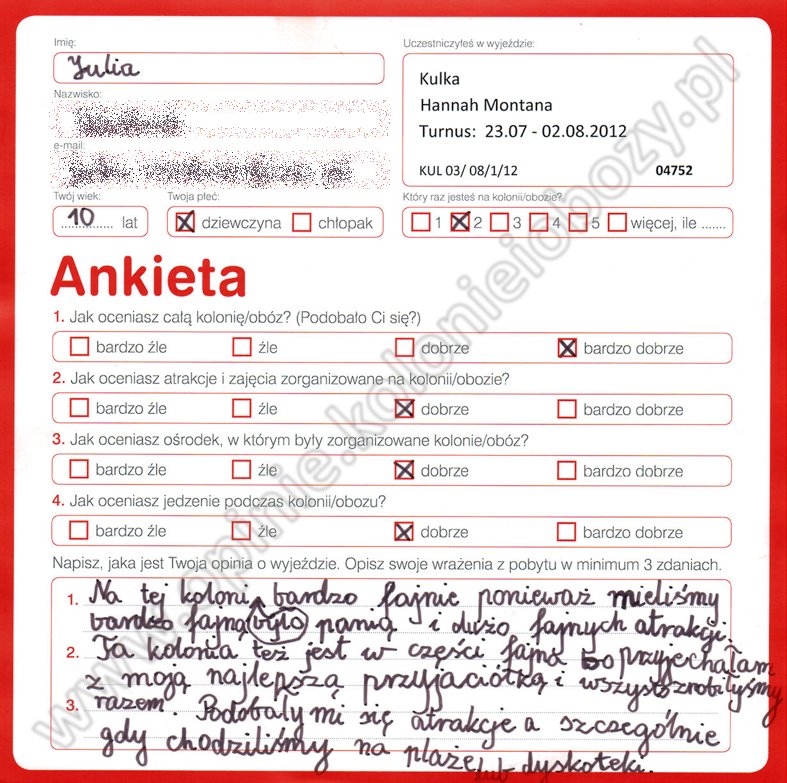 Imię:
Julia
Uczestniczyłeś w wyjeździe:
Kulka
Hannah Montana
Turnus: 23.07 - 02.08.2012
KUL 03/ 08/1/12 04752
Nazwisko:
e-mail:
Twój wiek:
10 lat
Twoja płeć:
dziewczyna chłopak
Który raz jesteś na kolonii/obozie?
1 2 3 4 5 więcej, ile .......
Ankieta
1. Jak oceniasz całą kolonię/obóz? (Podobało Ci się?)
bardzo źle źle dobrze bardzo dobrze
2. Jak oceniasz atrakcje i zajęcia zorganizowane na kolonii/obozie?
bardzo źle źle dobrze bardzo dobrze
3. Jak oceniasz ośrodek, w którym były zorganizowane kolonie/obóz?
bardzo źle źle dobrze bardzo dobrze
4. Jak oceniasz jedzenie podczas kolonii/obozu?
bardzo źle źle dobrze bardzo dobrze
Napisz, jaka jest Twoja opinia o wyjeździe. Opisz swoje wrażenia z pobytu w minimum 3 zdaniach.
1. Na tej koloni bardzo fajnie ponieważ mieliśmy
bardzo fajną było panią i dużo fajnych atrakcji.
2. Ta kolonia też jest w części fajna bo przyjechałam
z moją najlepszą przyjaciółką i zrobiłyśmy
3. razem. Podobały mi się atrakcje a szczególnie
gdy chodziliśmy na plażę lub dyskoteki.
www.opinie.kolonieiobozy.pl